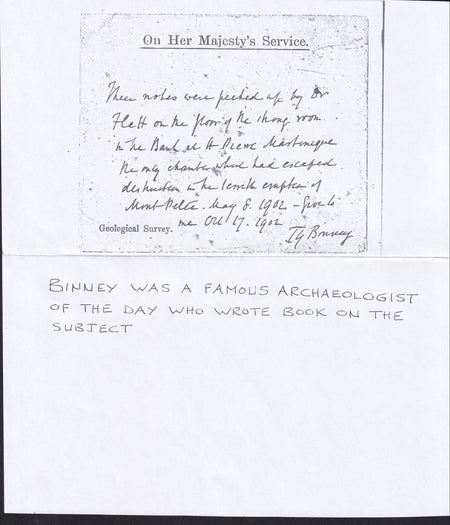 On Her Majesty's Service.
These notes were picked up by Dr
Flett on the floor of the strong room
in the Bank at St Pierre Martinique
the only chamber which had escaped
destruction in the terrible eruption of
Mont Pelée. May 8. 1902 – Give to
me Oct 17. 1902
Geological Survey.
T G Bonney
BINNEY WAS A FAMOUS ARCHAEOLOGIST
OF THE DAY WHO WROTE BOOK ON THE
SUBJECT